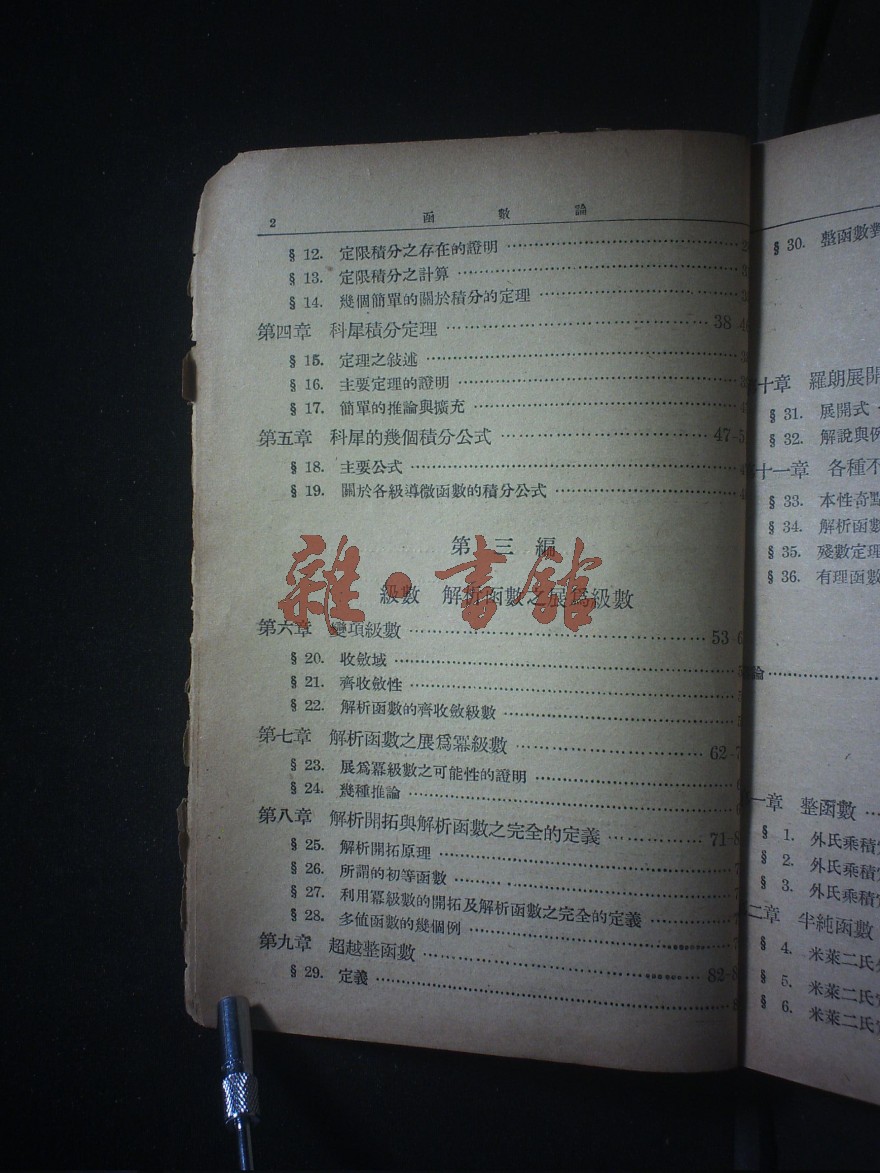 2 函數論
§ 12. 定限積分之存在的證明
§ 13. 定限積分之計算
§ 14. 幾個簡單的關於積分的定理
第四章 科犀積分定理 38-4
§ 15. 定理之敍述
§ 16. 主要定理的證明
§ 17. 簡單的推論與擴充
第五章 科犀的幾個積分公式 47-5
§ 18. 主要公式
§ 19. 關於各級導微函數的積分公式
第三編
級數 解析函數之展爲級數
雜·書館
第六章 變項級數 53-6
§ 20. 收斂域
§ 21. 齊收斂性
§ 22. 解析函數的齊收斂級數
第七章 解析函數之展爲冪級數 62-7
§ 23. 展爲冪級數之可能性的證明
§ 24. 幾種推論
第八章 解析開拓與解析函數之完全的定義 71-8
§ 25. 解析開拓原理
§ 26. 所謂的初等函數
§ 27. 利用冪級數的開拓及解析函數之完全的定義
§ 28. 多値函數的幾個例
第九章 超越整函數 82-8
§ 29. 定義
§ 30. 整函數
十章 羅朗展開
§ 31. 展開式
§ 32. 解說與例
十一章 各種不
§ 33. 本性奇點
§ 34. 解析函數
§ 35. 殘數定理
§ 36. 有理函數
論
一章 整函數
§ 1. 外氏乘積
§ 2. 外氏乘積
§ 3. 外氏乘積
二章 半純函數
§ 4. 米萊二氏
§ 5. 米萊二氏
§ 6. 米萊二氏